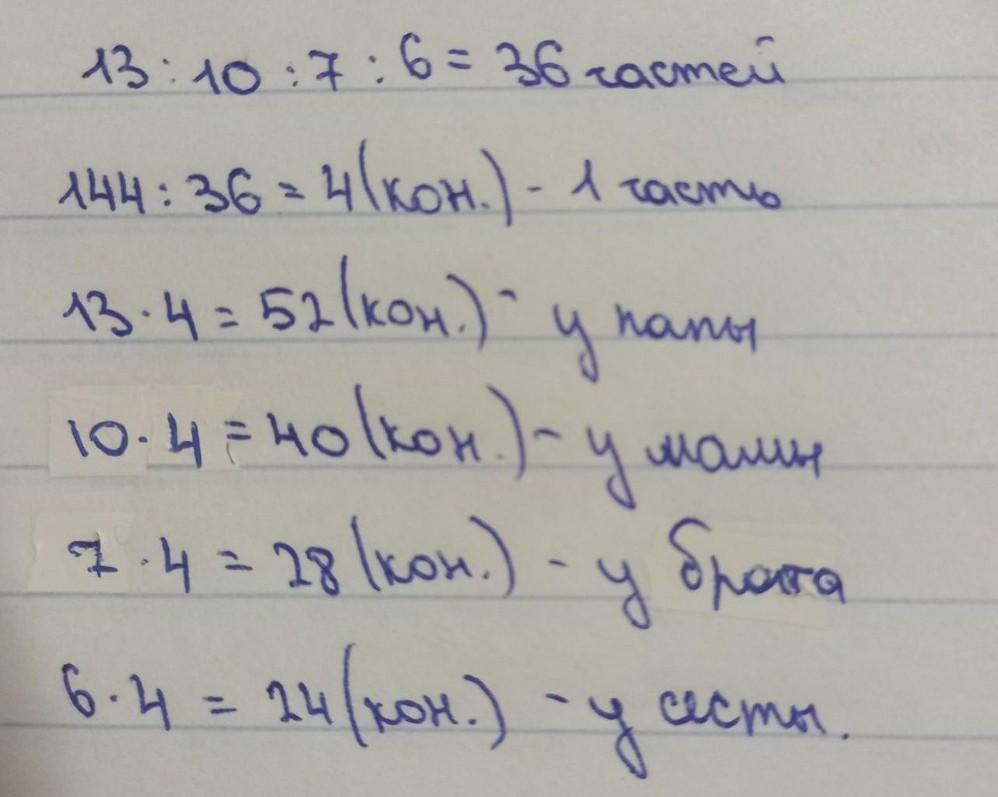 13 : 10 : 7 : 6 = 36 частей
144 : 36 = 4 (кон.) - 1 часть
13 · 4 = 52 (кон.) - у папы
10 · 4 = 40 (кон.) - у мамы
7 · 4 = 28 (кон.) - у брата
6 · 4 = 24 (кон.) - у сесты.